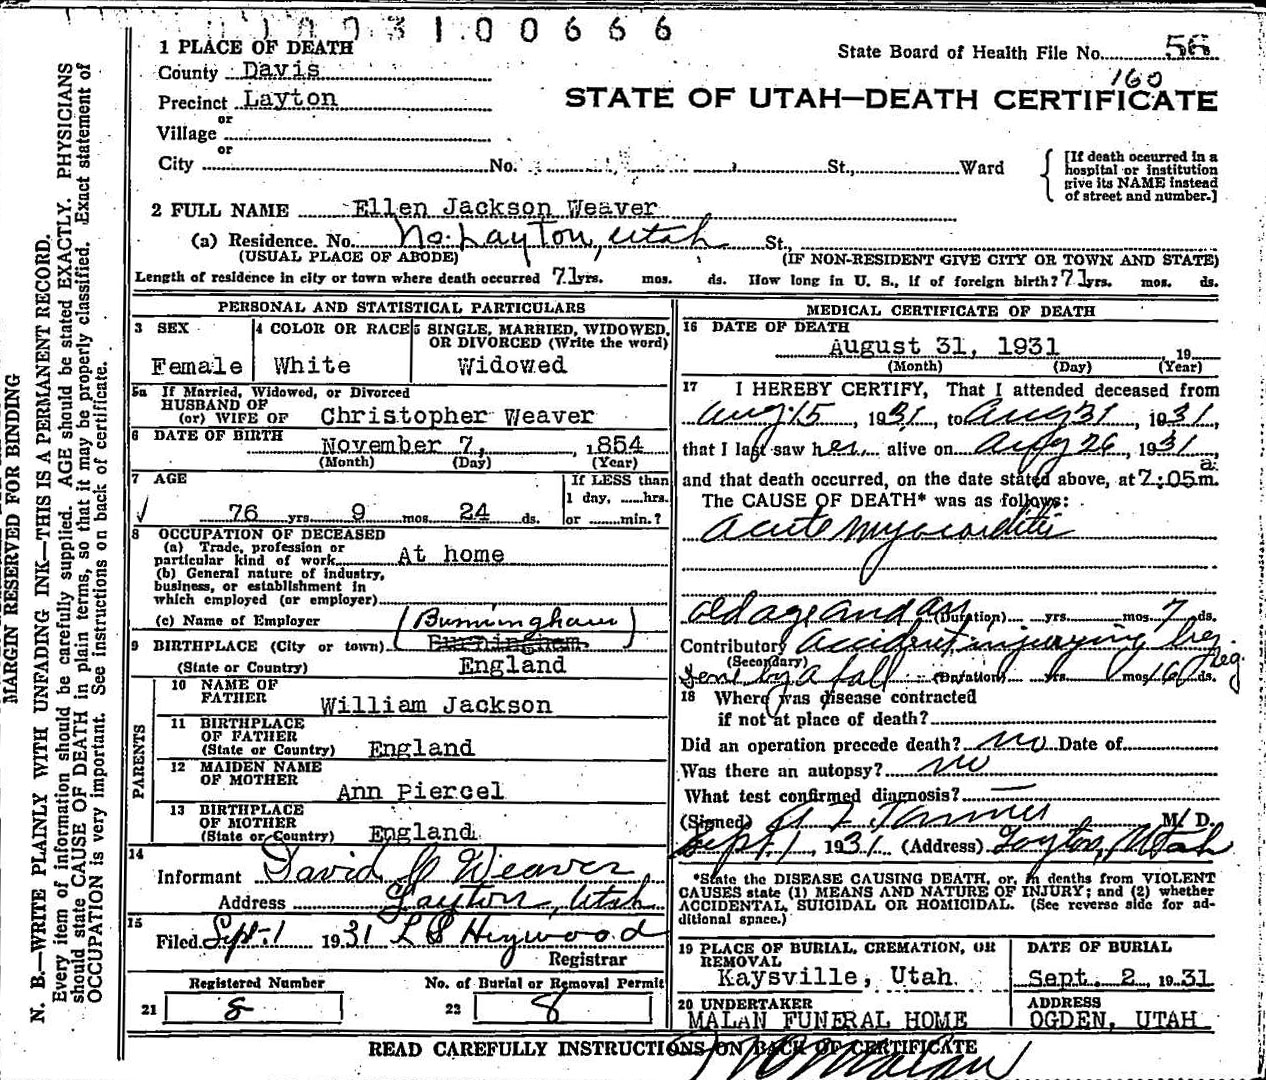 1 0 0 3 1 0 0 6 6 6
1 PLACE OF DEATH
County Davis
Precinct Layton
or
Village
or
City No. St., Ward
State Board of Health File No. 56
160
STATE OF UTAH—DEATH CERTIFICATE
[If death occurred in a
hospital or institution
give its NAME instead
of street and number.]
2 FULL NAME Ellen Jackson Weaver
(a) Residence. No. No. Layton, Utah St.,
(USUAL PLACE OF ABODE) (IF NON-RESIDENT GIVE CITY OR TOWN AND STATE)
Length of residence in city or town where death occurred 71 yrs. mos. ds. How long in U. S., if of foreign birth? 71 yrs. mos. ds.
PERSONAL AND STATISTICAL PARTICULARS
3 SEX
Female
4 COLOR OR RACE
White
5 SINGLE, MARRIED, WIDOWED,
OR DIVORCED (Write the word)
Widowed
5a If Married, Widowed, or Divorced
HUSBAND OF
(or) WIFE OF Christopher Weaver
6 DATE OF BIRTH
November 7, , 1854
(Month) (Day) (Year)
7 AGE
76 yrs. 9 mos. 24 ds.
If LESS than
1 day, ......hrs.
or ........min.?
8 OCCUPATION OF DECEASED
(a) Trade, profession or
particular kind of work At home
(b) General nature of industry,
business, or establishment in
which employed (or employer)
(c) Name of Employer
(Burmingham)
9 BIRTHPLACE (City or town) Burningham
(State or Country) England
PARENTS
10 NAME OF
FATHER William Jackson
11 BIRTHPLACE
OF FATHER
(State or Country) England
12 MAIDEN NAME
OF MOTHER Ann Piercel
13 BIRTHPLACE
OF MOTHER
(State or Country) England
14
Informant David Weaver
Address Layton, Utah
15
Filed Sept. 1 1931 L S Heywood
Registrar
Registered Number No. of Burial or Removal Permit
21 8 22 8
MEDICAL CERTIFICATE OF DEATH
16 DATE OF DEATH
August 31, 1931 , 19
(Month) (Day) (Year)
17 I HEREBY CERTIFY, That I attended deceased from
Aug 15, 1931 to Aug 31, 1931,
that I last saw her alive on Aug 26, 1931,
and that death occurred, on the date stated above, at 7:05 a.m.
The CAUSE OF DEATH* was as follows:
acute myocarditis
old age and (Duration) yrs. mos. 7 ds.
Contributory accident injurying her leg
(Secondary)
by a fall (Duration) yrs. mos. 16 ds.
18 Where was disease contracted
if not at place of death?
Did an operation precede death? no Date of
Was there an autopsy? no
What test confirmed diagnosis? —
(Signed) Tanner M. D.
Sept. 1, 1931 (Address) Layton, Utah
*State the DISEASE CAUSING DEATH, or, in deaths from VIOLENT
CAUSES state (1) MEANS AND NATURE OF INJURY; and (2) whether
ACCIDENTAL, SUICIDAL OR HOMICIDAL. (See reverse side for ad-
ditional space.)
19 PLACE OF BURIAL, CREMATION, OR
REMOVAL
Kaysville, Utah.
DATE OF BURIAL
Sept. 2 1931
20 UNDERTAKER
MALAN FUNERAL HOME
ADDRESS
OGDEN, UTAH
READ CAREFULLY INSTRUCTIONS ON BACK OF CERTIFICATE
Malan
MARGIN RESERVED FOR BINDING
N. B.—WRITE PLAINLY WITH UNFADING INK—THIS IS A PERMANENT RECORD.
Every item of information should be carefully supplied. AGE should be stated EXACTLY. PHYSICIANS
should state CAUSE OF DEATH in plain terms, so that it may be properly classified. Exact statement of
OCCUPATION is very important. See instructions on back of certificate.